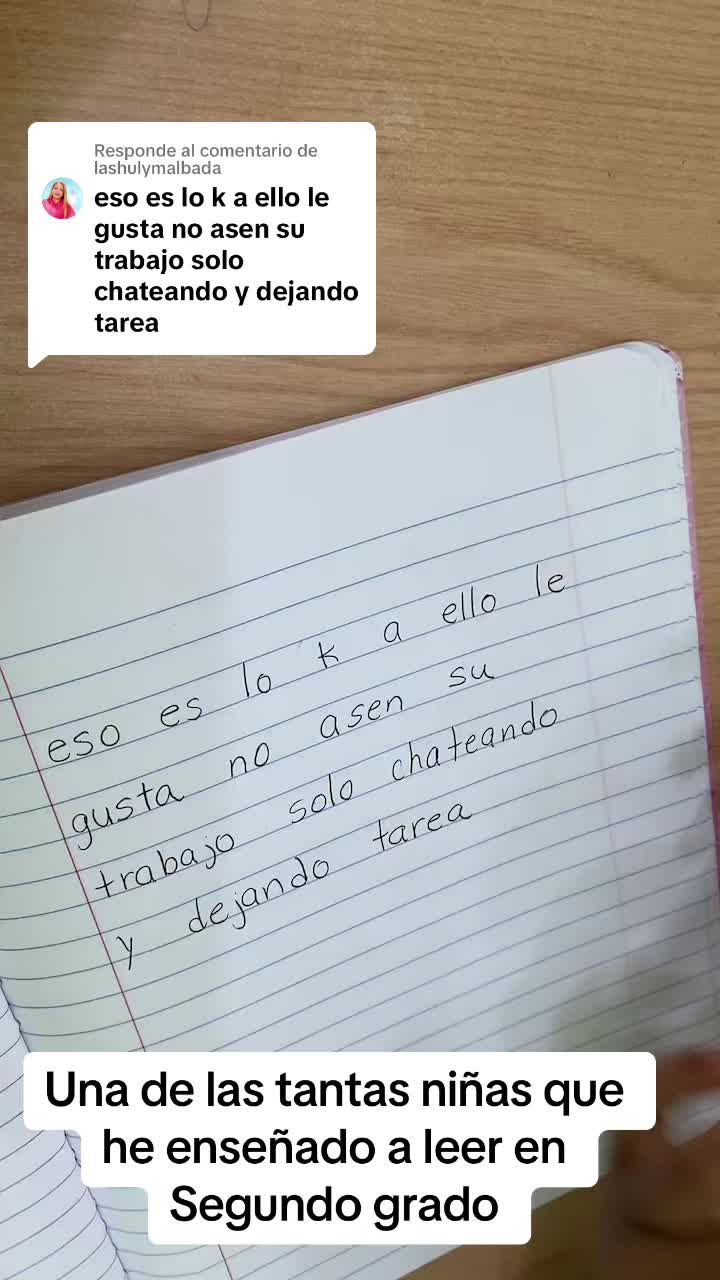 Responde al comentario de
lashulymalbada
eso es lo k a ello le
gusta no asen su
trabajo solo
chateando y dejando
tarea
eso es lo k a ello le
gusta no asen su
trabajo solo chateando
y dejando tarea
Una de las tantas niñas que
he enseñado a leer en
Segundo grado